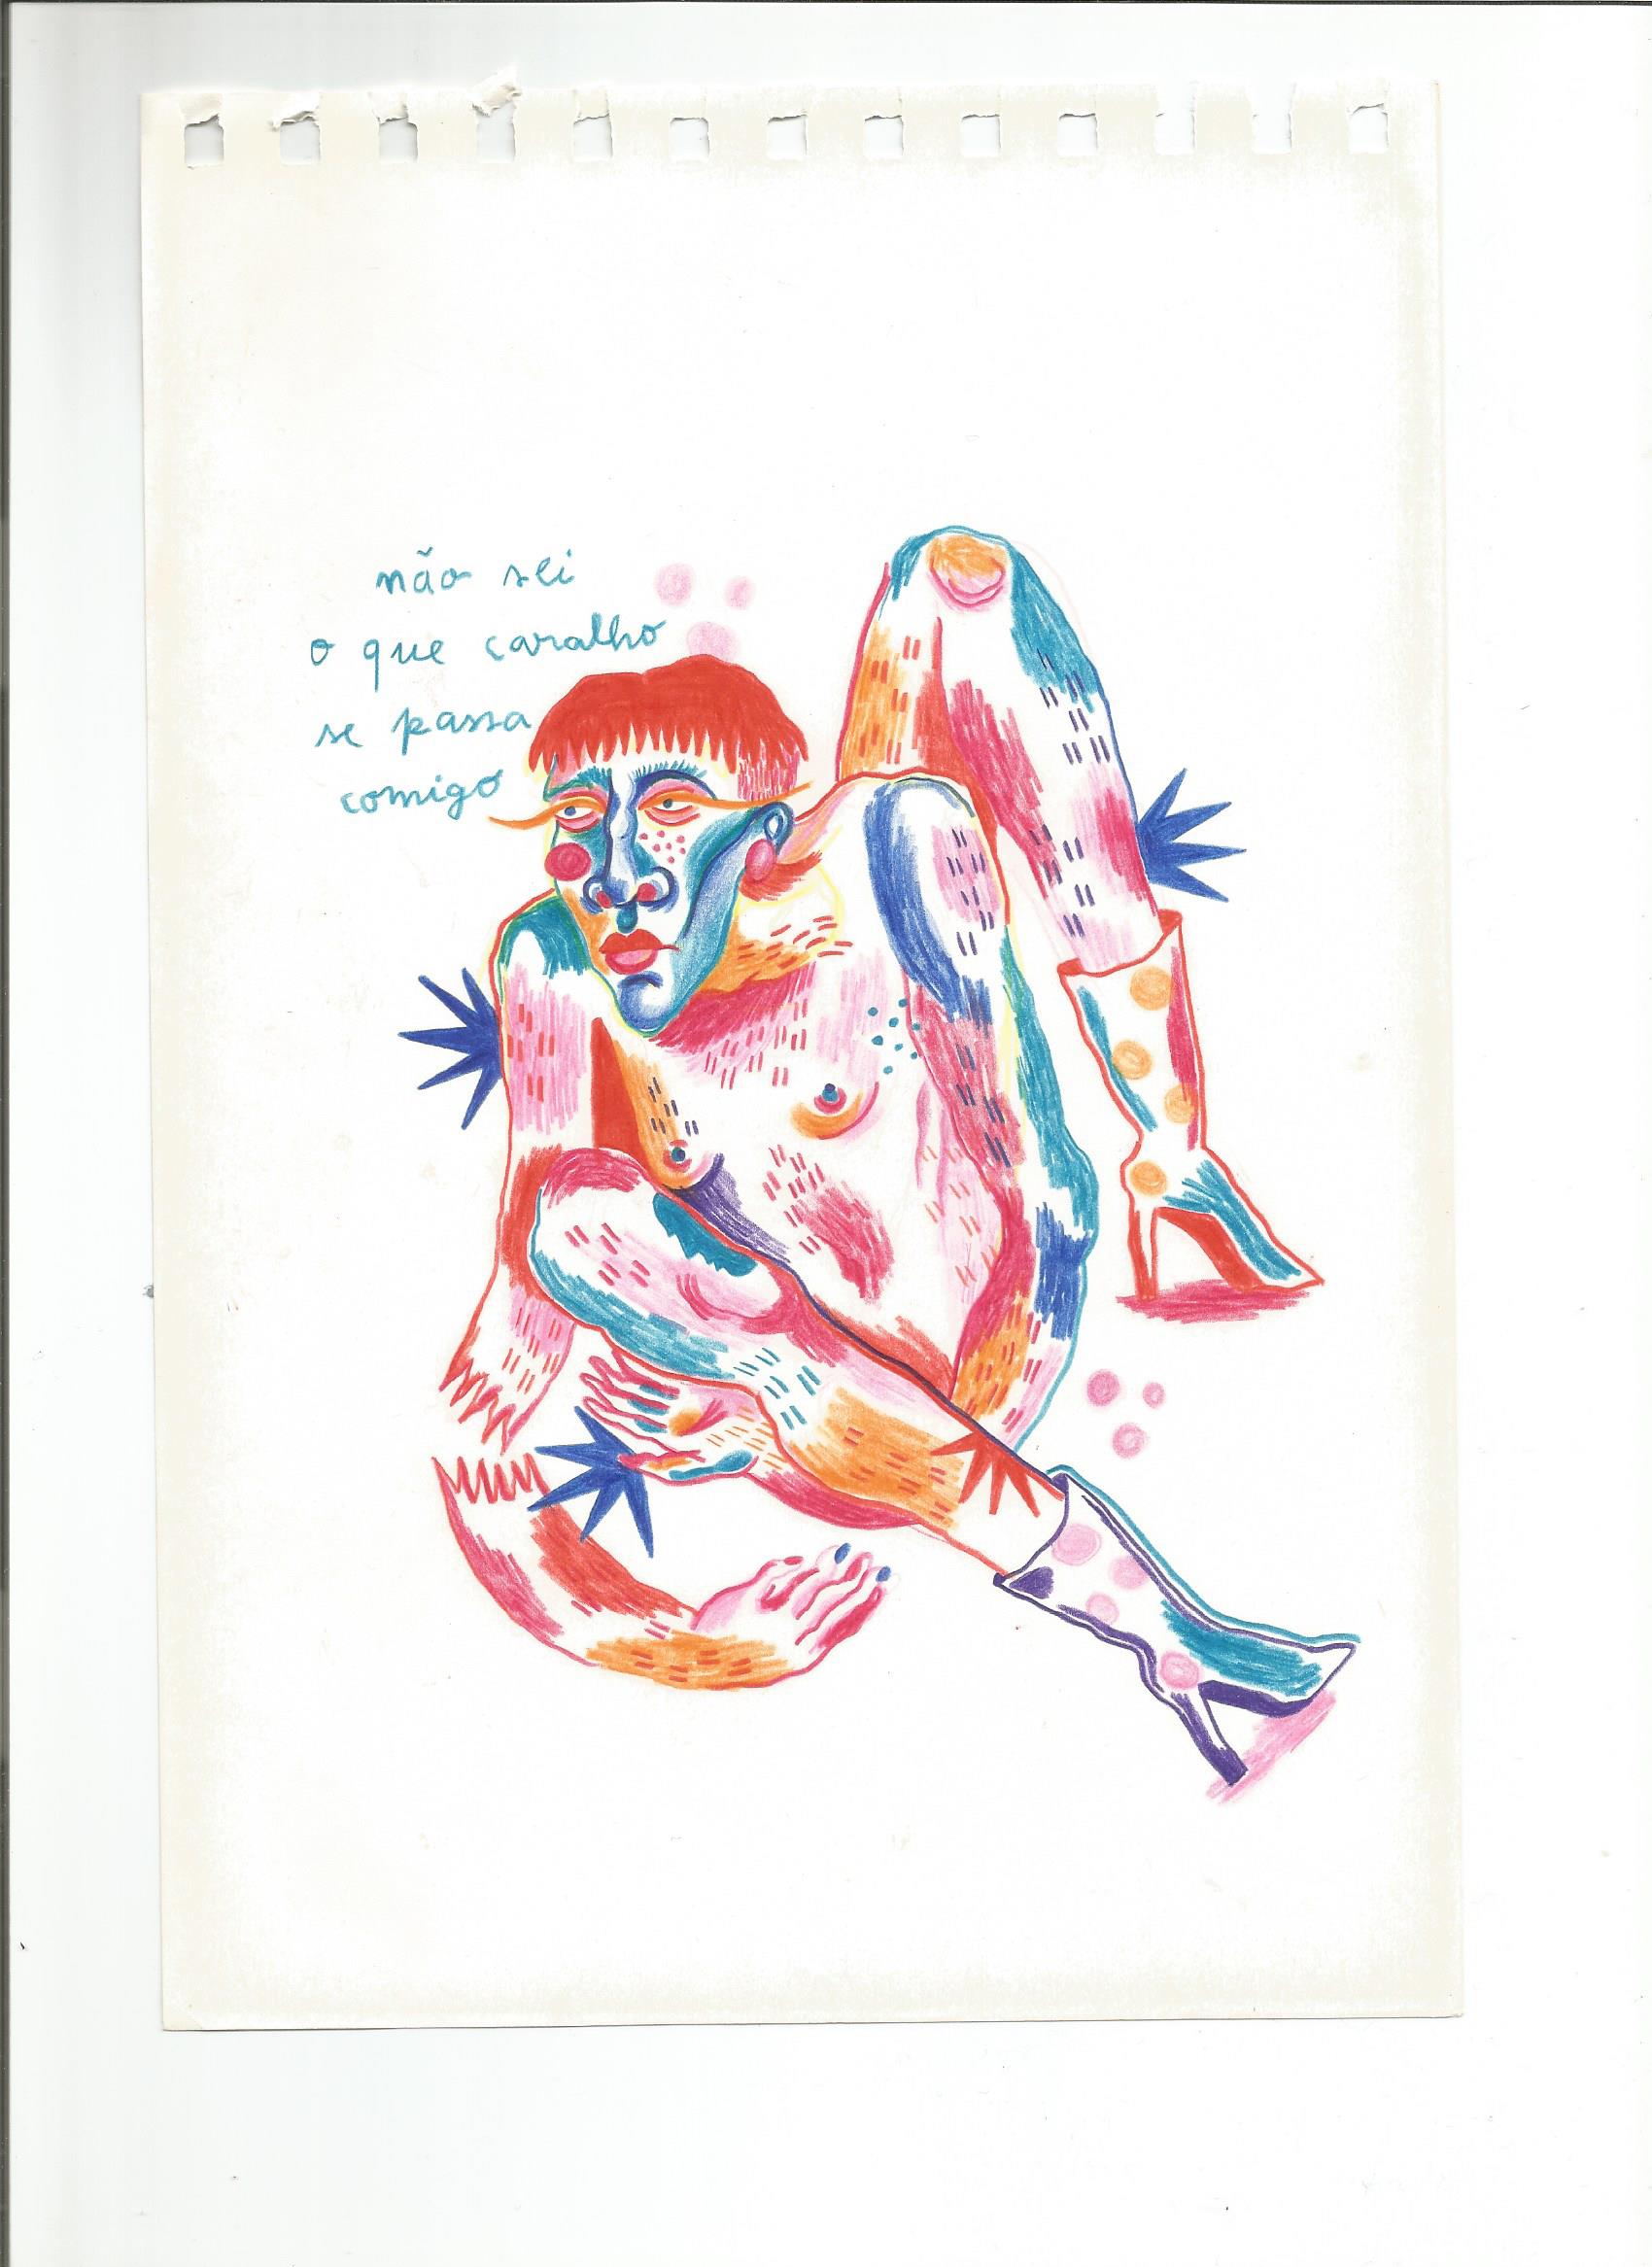 não sei
o que caralho
se passa
comigo